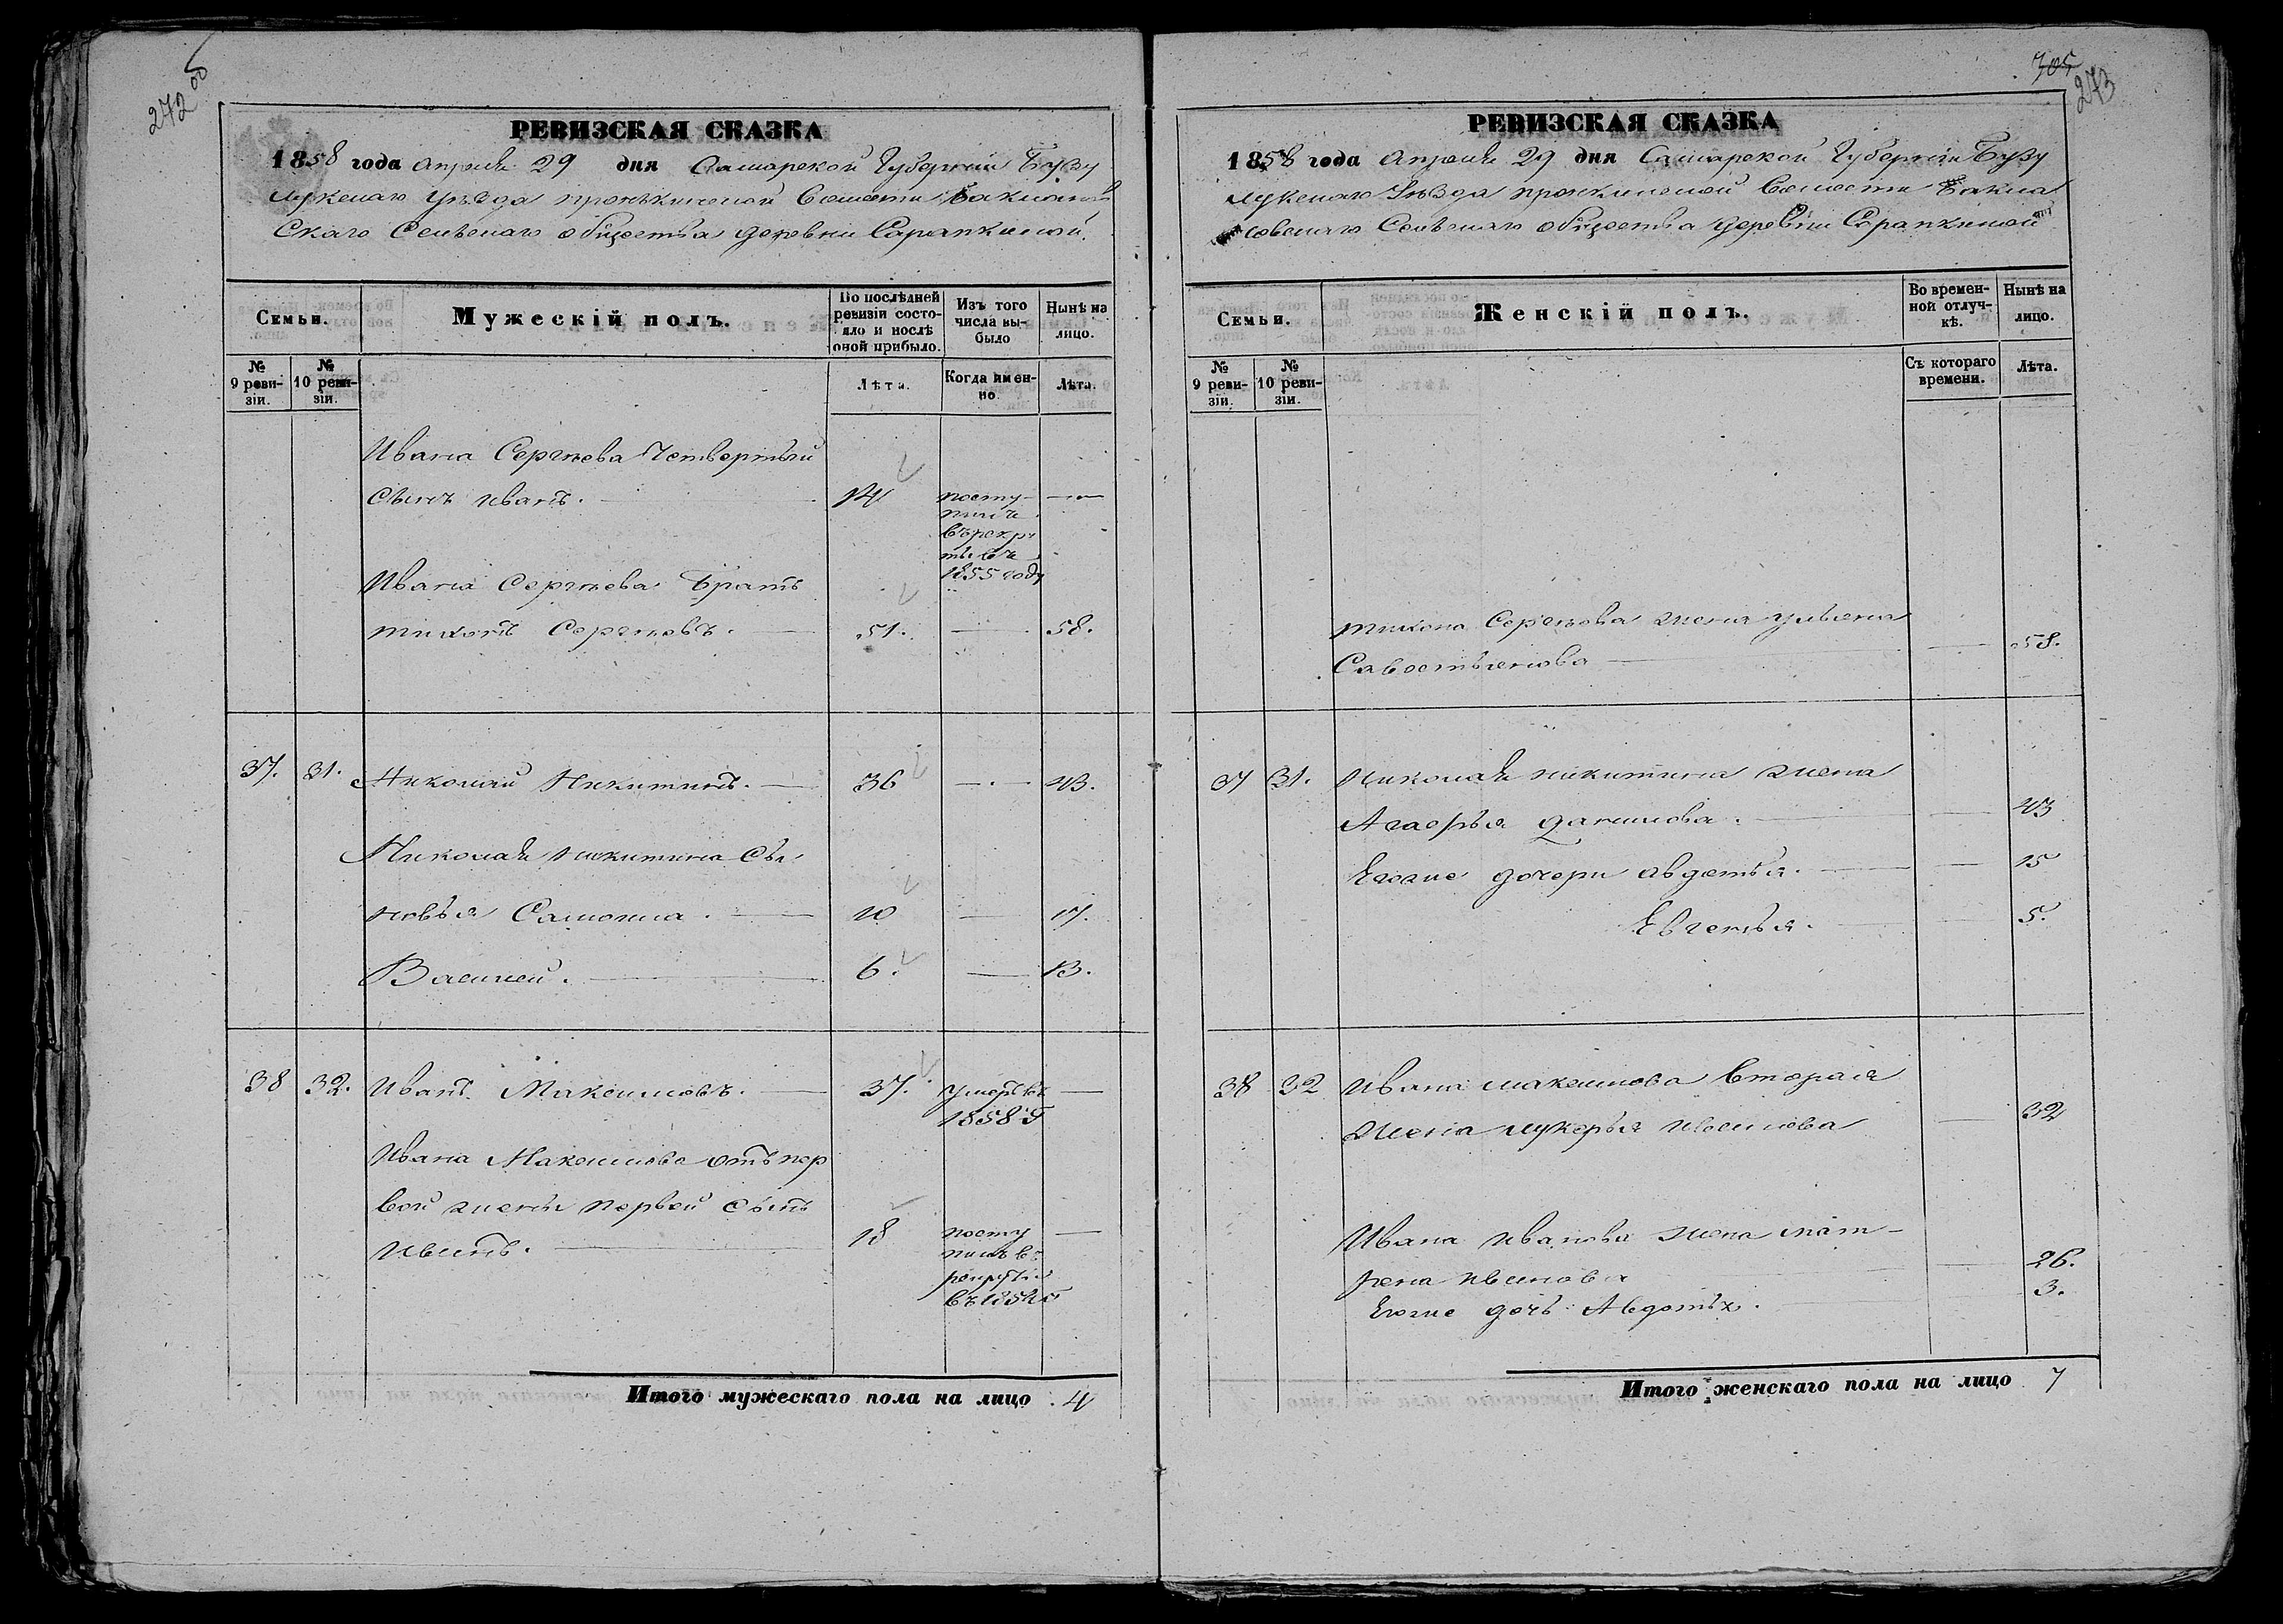 272 об
РЕВИЗСКАЯ СКАЗКА
1858 года Апреля 29 дня Самарской Губернии Бузу
лукскаго Уѣзда пронькинской Волости Баклановъ
Скаго Сельскаго общества деревни Сарапкиной.
Семьи.
Мужескій полъ.
По послѣдней ревизіи состояло и послѣ оной прибыло.
Изъ того числа выбыло
Нынѣ на лицо.
№ 9 ревизіи.
№ 10 ревизіи.
Лѣта.
Когда именно.
Лѣта.
Ивана Сергѣева Четвертый
сынъ иванъ. 14 посту-
пилъ
въ рекру
ты въ
1855 году
Ивана Сергѣева Братъ
тихонъ Сергѣевъ. 51. 58.
37. 31. Николай Никитинъ. 36 43.
Николая никитина Сы
новья Самойла. 10 17.
Василей. 6. 13.
38 32. Иванъ Максимовъ. 37. умеръ въ
1858 г
Ивана Максимова отъ пер
вой жены первой сынъ
Иванъ. 18 посту
пилъ въ
рекруты
Итого мужескаго пола на лицо 4
705
273
РЕВИЗСКАЯ СКАЗКА
1858 года Апреля 29 дня Самарской Губерніи Бузу
лукскаго Уѣзда пронкинской Волости Бакла
новскаго Сельскаго общества деревни Сарапкиной
Семьи.
Женскій полъ.
Во временной отлучкѣ.
Нынѣ на лицо.
№ 9 ревизіи.
№ 10 ревизіи.
Съ котораго времени.
Лѣта.
тихона Сергѣева жена ульяна
Савостьянова 58.
37 31. Николая никитина жена
Агафья данилова. 43
Егоже дочери авдотья. 15
Евгенья. 5.
38 32 Ивана максимова вторая
жена лукерья 32
Ивана иванова жена мат-
рена 26.
Егоже дочь Авдотья. 3.
Итого женскаго пола на лицо 7